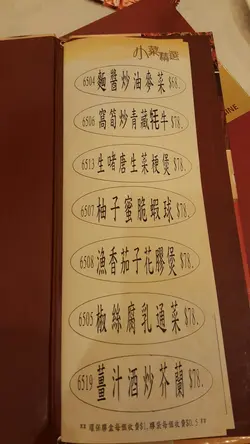 小菜精選
6504 麵醬炒油麥菜 $68.
6506 窩筍炒青藏牦牛 $78.
6513 生啫唐生菜梗煲 $78.
6507 柚子蜜脆蝦球 $78.
6508 漁香茄子花膠煲 $78.
6505 椒絲腐乳通菜 $78.
6519 薑汁酒炒芥蘭 $78.